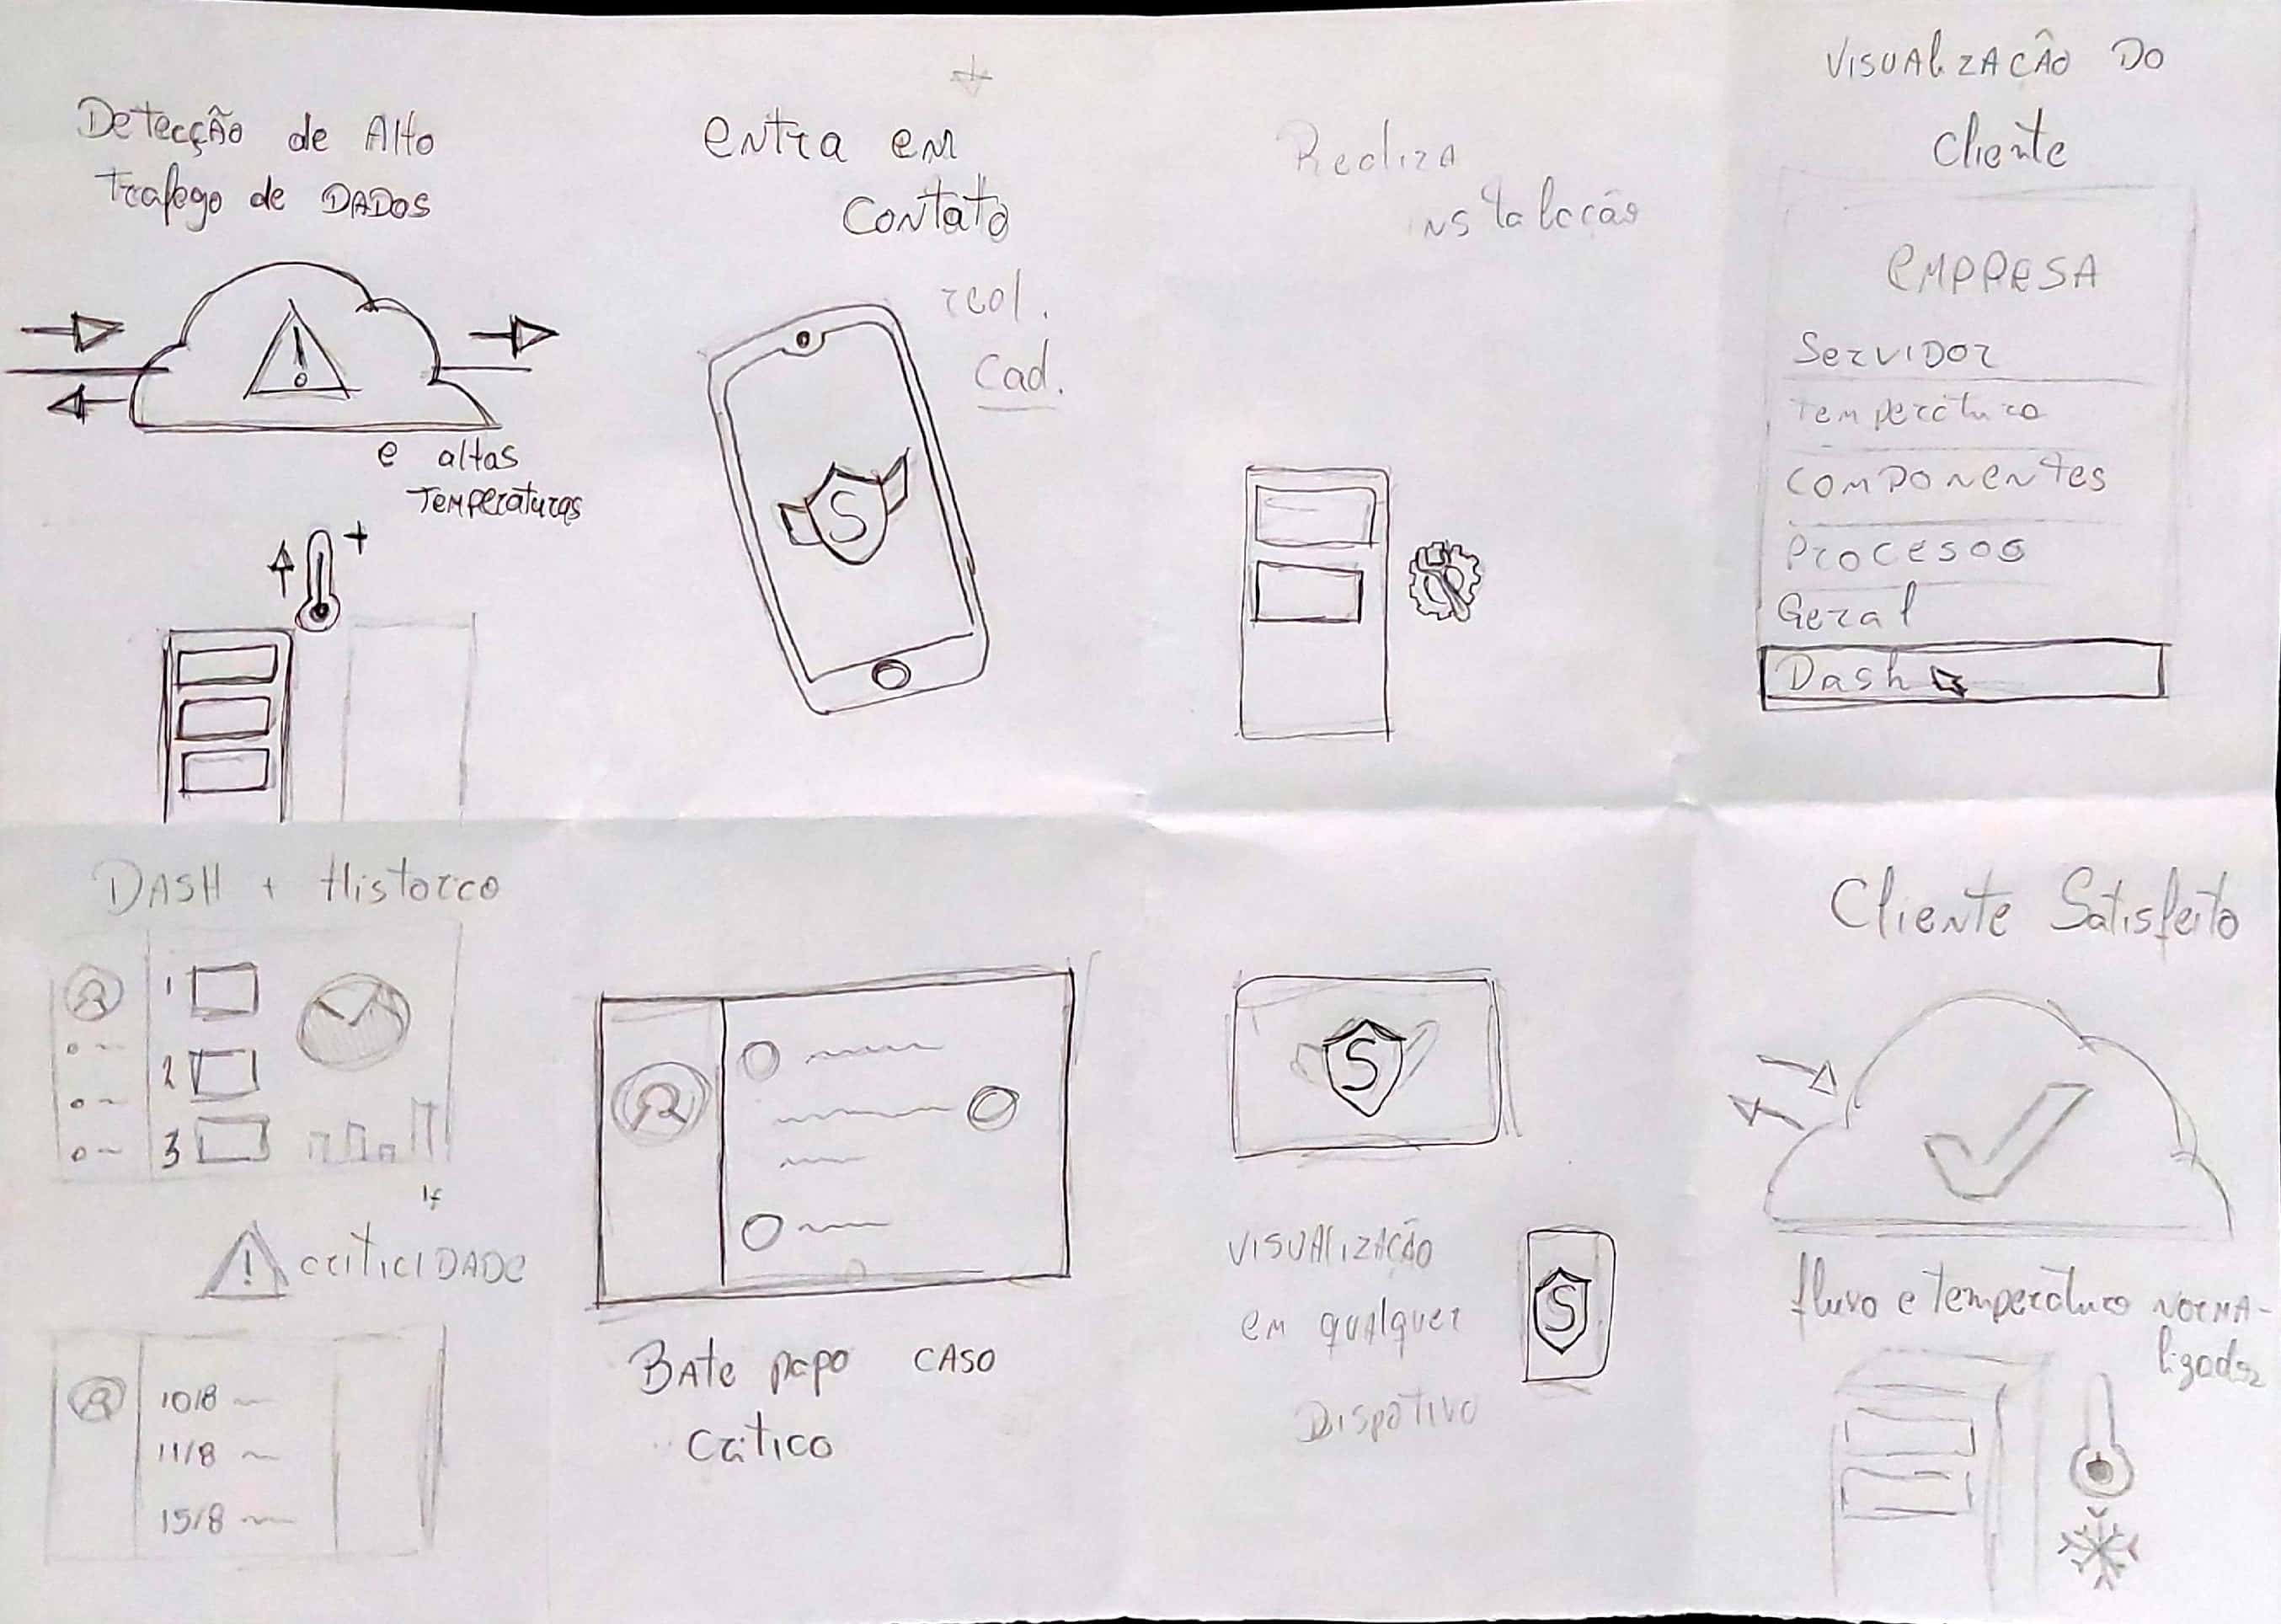 Detecção de Alto
Trafego de DADOS
e altas
Temperaturas
entra em
Contato
cad.
S
Realiza
nstalação
VISUALIZACÃO DO
Cliente
EMPRESA
Servidor
Temperatura
COMPONENTES
Procesos
Geral
Dash
DASH + Historco
1
2
3
criticIDADe
10/8
11/8
15/8
BAte papo CASO
Crítico
S
VISUAlIZAÇÃO
em qualquer
Dispotivo
S
Cliente Satisfeito
fluxo e temperatura NORMA-
lizados